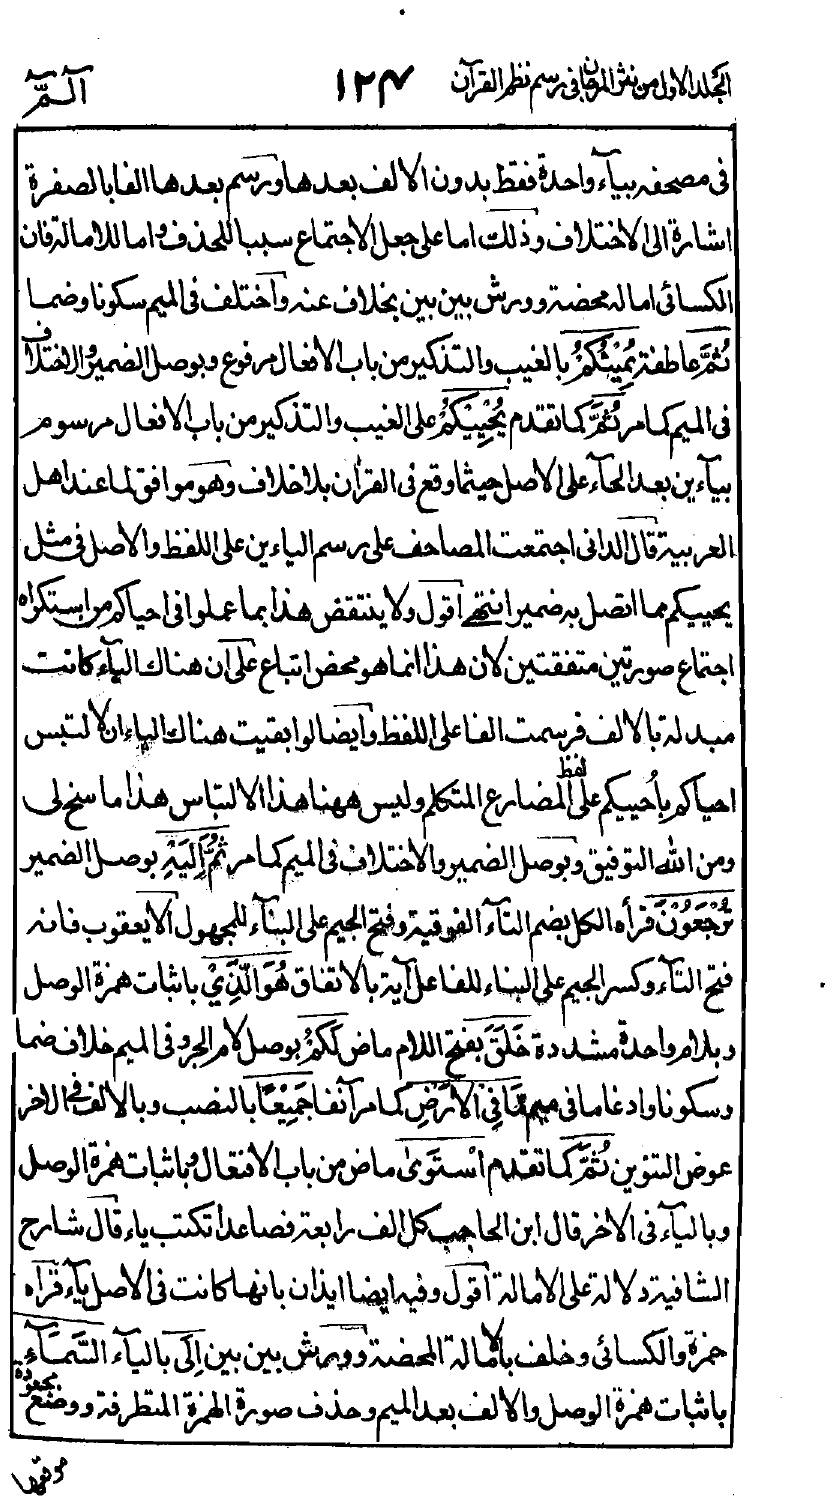 الجلد الاول من نثر المرجان فى رسم نظم القرآن ١٢٤ آلـمّ
فى مصحفه بيآء واحدة فقط بدون الالف بعدها ورسم بعدها الفا بالصفرة
اشارة الى الاختلاف وذلك اما على جعل الاجتماع سببا للحذف واما للامالة فان
الكسائى اماله محضة وورش بين بين بخلاف عنه واختلف فى الميم سكونا وضما
ثُمَّ عاطفة يُمِيْتُكُمْ بالغيب والتذكير من باب الافعال مرفوع وبوصل الضمير والاختلاف
فى الميم كما مر ثُمَّ كما تقدم يُحْيِيْكُمْ على الغيب والتذكير من باب الافعال مرسوم
بيآءين بعد الحآء على الاصل حيثما وقع فى القرآن بلا خلاف وهو موافق لما عند اهل
العربية قال الدانى اجتمعت المصاحف على رسم الياءين على اللفظ والاصل فى مثل
يحييكم مما اتصل به ضمير انتهى اقول ولا ينتقض هذا بما عملوا فى احياكم من استكراه
اجتماع صورتين متفقتين لان هذا انما هو محض اتباع على ان هناك اليآء كانت
مبدلة بالالف فرسمت الفا على اللفظ وايضا لو ابقيت هناك الياءان لالتبس
احياكم باُحييكم على لفظ المضارع المتكلم وليس ههنا هذا الالتباس هذا ما سنح لى
ومن الله التوفيق وبوصل الضمير والاختلاف فى الميم كما مر ثُمَّ اِلَيْهِ بوصل الضمير
تُرْجَعُوْنَ قرأه الكل بضم التآء الفوقية وفتح الجيم على البنآء للمجهول الا يعقوب فانه
فتح التآء وكسر الجيم على البناء للفاعل آية بالاتفاق هُوَ الَّذِيْ باثبات همزة الوصل
وبلام واحدة مشددة خَلَقَ بفتح اللام ماض لَكُمْ بوصل لام الجر وفى الميم خلاف ضما
وسكونا وادغاما فى ميم مَّا فِى الْاَرْضِ كما مر آنفا جَمِيْعًا بالنصب وبالالف فى الاخر
عوض التنوين ثُمَّ كما تقدم اسْتَوٰى ماض من باب الافتعال وباثبات همزة الوصل
وباليآء فى الاخر قال ابن الحاجب كل الف رابعة فصاعدا تكتب ياء قال شارح
الشافية دلالة على الامالة اقول وفيه ايضا ايذان بانها كانت فى الاصل يآء قرأه
حمزة والكسائى وخلف بالامالة المحضة وورش بين بين اِلَى باليآء السَّمَآءِ
باثبات همزة الوصل والالف بعد الميم وحذف صورة الهمزة المتطرفة ووضع مجعودة
موقعها